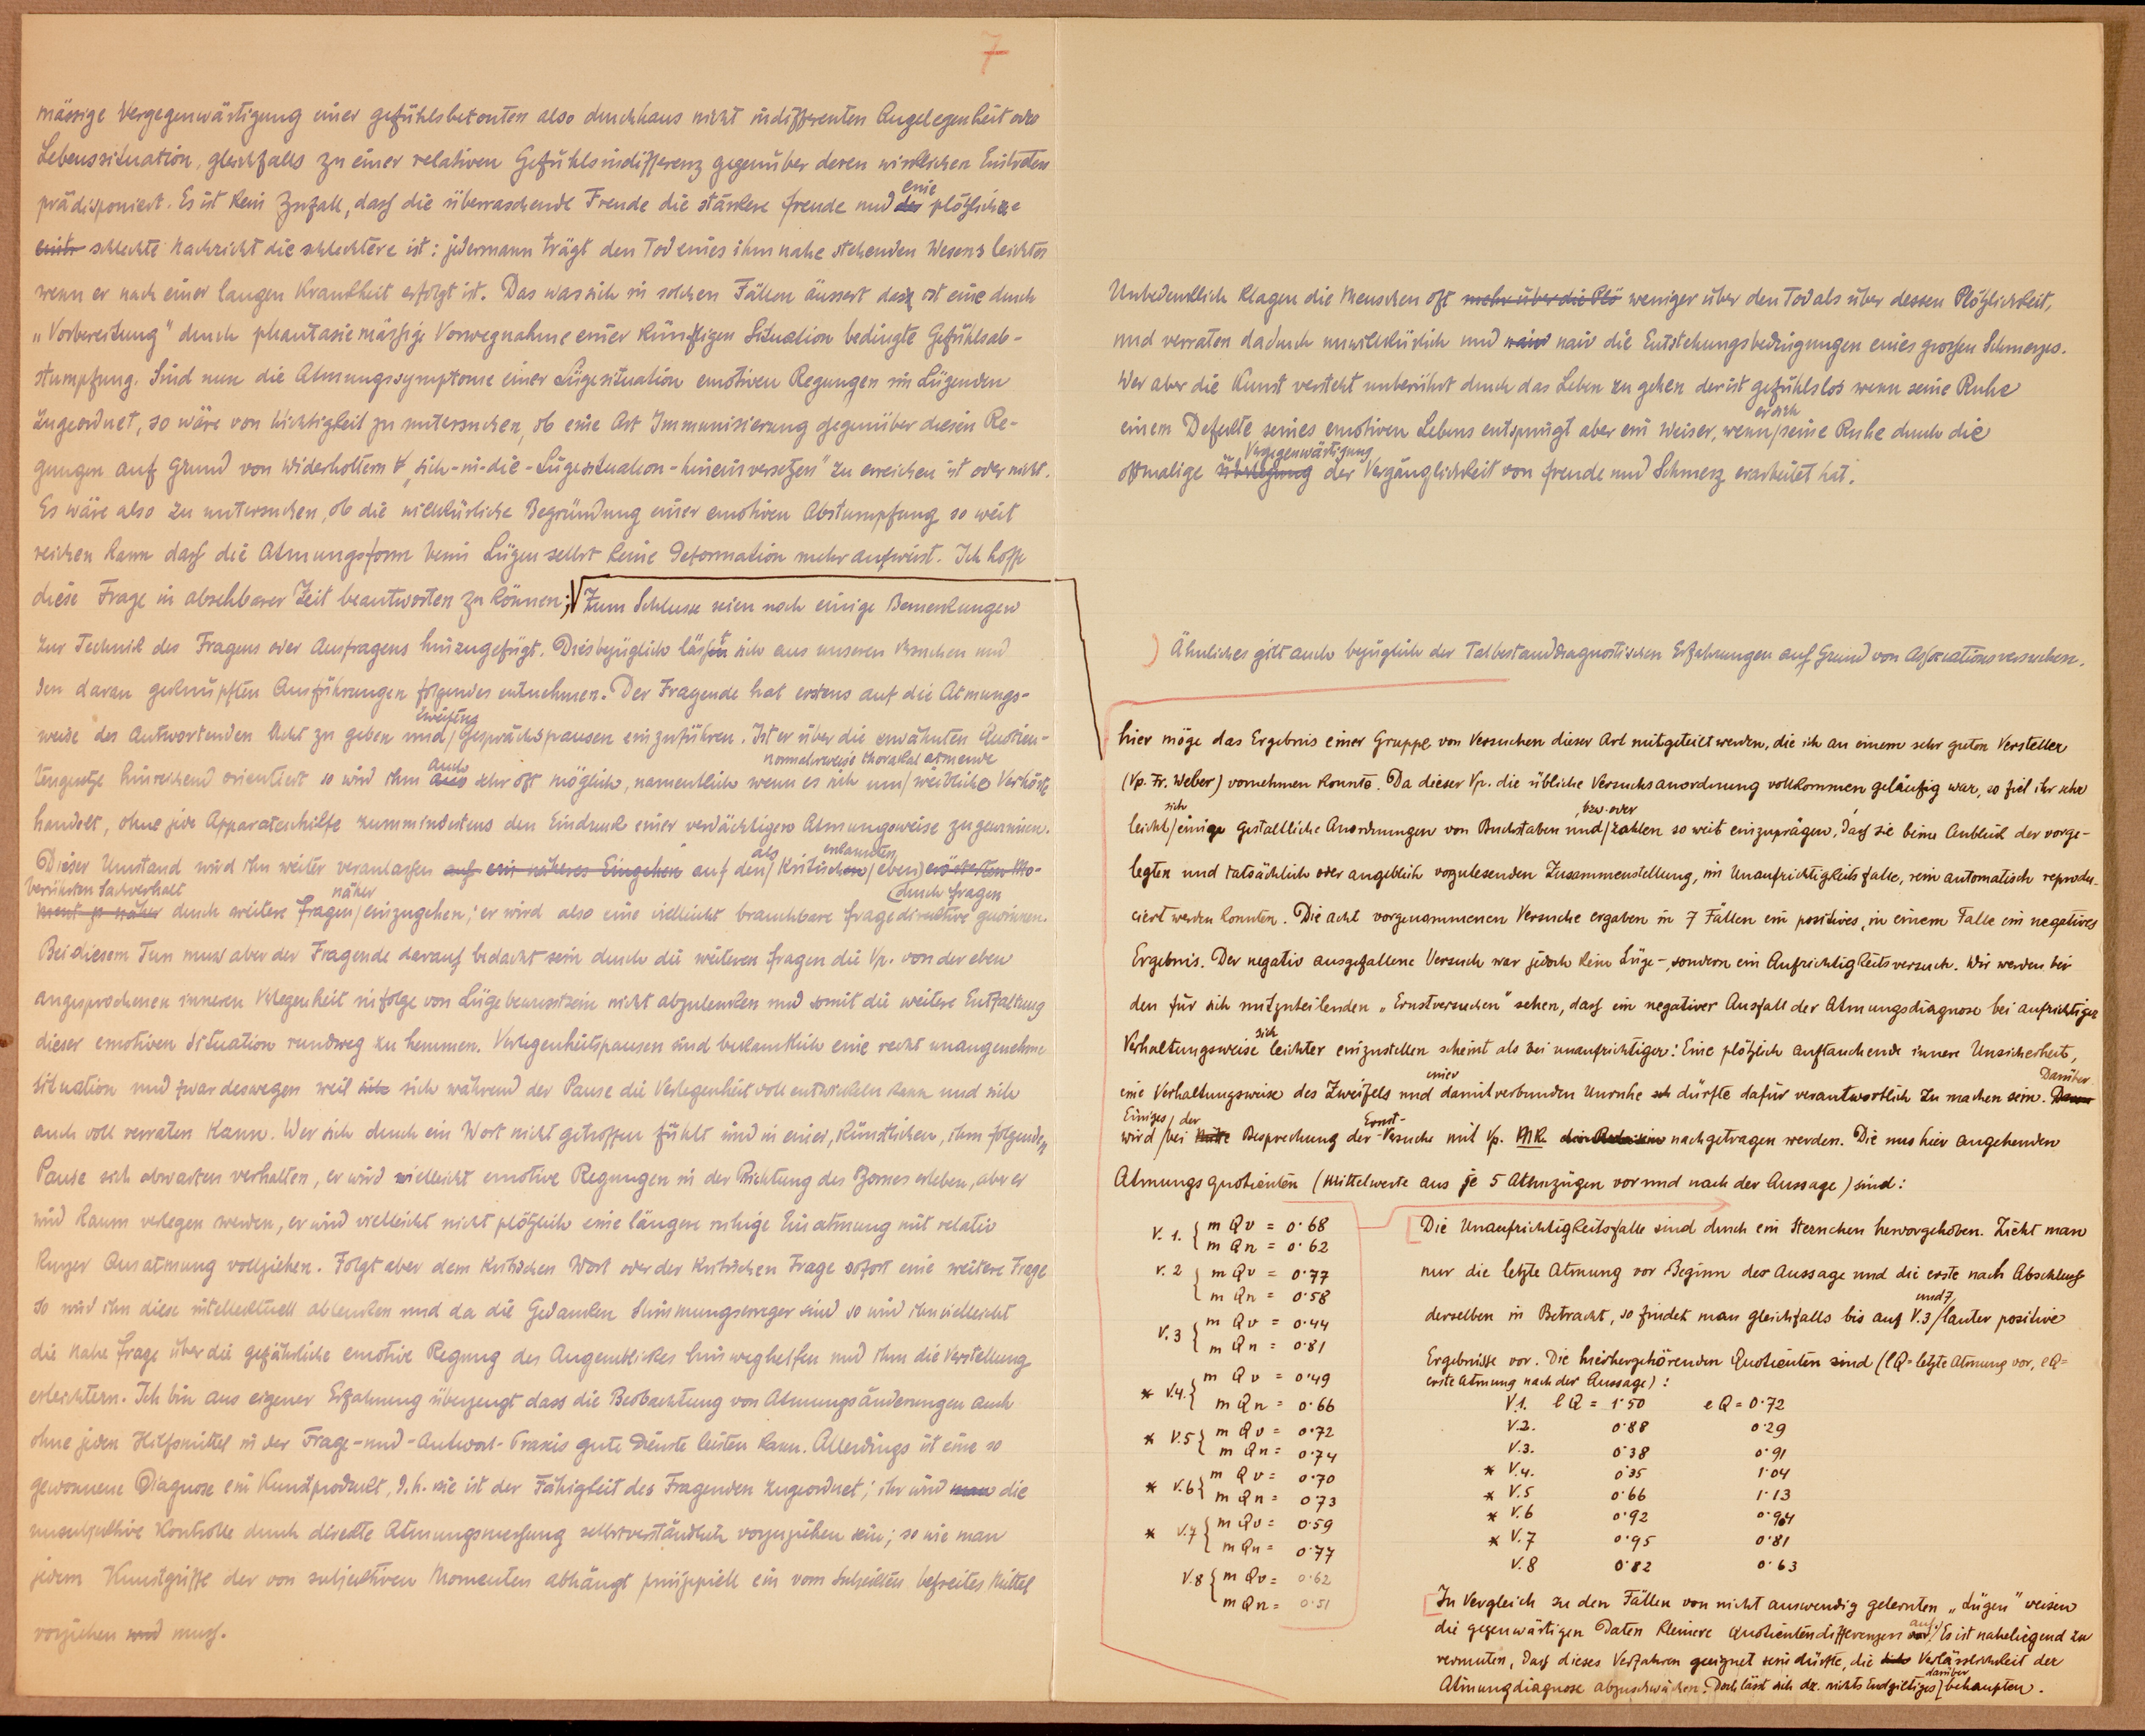 7
mässige Vergegenwärtigung einer gefühlsbetonten also durchaus nicht indifferenten Angelegenheit oder
Lebenssituation, gleichfalls zu einer relativen Gefühlsindifferenz gegenüber deren wirklichen Eintreten
prädisponiert. Es ist kein Zufall, dass die überraschende Freude die stärkere Freude und der eine plötzliche
schlechte Nachricht die schlechtere ist: jedermann trägt den Tod eines ihm nahe stehenden Wesens leichter
wenn er nach einer langen Krankheit erfolgt ist. Das was sich in solchen Fällen äussert das ist eine durch
„Vorbereitung" durch phantasiemässige Vorwegnahme einer künftigen Situation bedingte Gefühlsab-
stumpfung. Sind nun die Atmungssymptome einer Lügesituation emotiven Regungen im Lügenden
zugeordnet, so wäre von Wichtigkeit zu untersuchen, ob eine Art Immunisierung gegenüber diesen Re-
gungen auf Grund von widerholtem „sich-in-die-Lügesituation-hineinversetzen" zu erreichen ist oder nicht.
Es wäre also zu untersuchen, ob die willkürliche Begründung einer emotiven Abstumpfung so weit
reichen kann dass die Atmungsform beim Lügen selbst keine Deformation mehr aufweist. Ich hoffe
diese Frage in absehbarer Zeit beantworten zu können; Zum Schlusse seien noch einige Bemerkungen
zur Technik des Fragens oder Ausfragens hinzugefügt. Diesbezüglich lässt sich aus unseren Versuchen und
den daran geknüpften Ausführungen folgendes entnehmen. Der Fragende hat erstens auf die Atmungs-
weise des Antwortenden Acht zu geben und zweitens Gesprächspausen einzuführen. Ist er über die erwähnten Quotien-
tengesetze hinreichend orientiert so wird ihm auch sehr oft möglich, namentlich wenn es sich um normalerweise thorakal atmende weibliche Verhörte
handelt, ohne jede Apparatenhilfe zummindestens den Eindruck einer verdächtigen Atmungsweise zu gewinnen.
Dieser Umstand wird ihn weiter veranlassen auf ein näheres Eingehen auf den als kritisch erkannten eben erörterten Mo-
berührten Sachverhalt
ment näher durch weitere Fragen näher einzugehen; er wird also eine vielleicht brauchbare Fragedirektive durch Fragen gewinnen.
Bei diesem Tun muss aber der Fragende darauf bedacht sein durch die weiteren Fragen die Vp. von der eben
angesprochenen inneren Verlegenheit infolge von Lügebewusstsein nicht abzulenken und somit die weitere Entfaltung
dieser emotiven Situation rundweg zu hemmen. Verlegenheitspausen sind bekanntlich eine recht unangenehme
Situation und zwar deswegen weil sich während der Pause die Verlegenheit voll entwickeln kann und sich
auch voll verraten kann. Wer sich durch ein Wort nicht getroffen fühlt und in einer, künstlichen, ihm folgenden
Pause sich abwarten verhalten, er wird vielleicht emotive Regungen in der Richtung des Zornes erleben, aber er
wird kaum verlegen werden, er wird vielleicht nicht plötzlich eine längere ruhige Einatmung mit relativ
kurzer Ausatmung vollziehen. Folgt aber dem kritischen Wort oder der kritischen Frage sofort eine weitere Frage
so wird ihn diese intellektuell ablenken und da die Gedanken Stimmungserreger sind so wird ihm vielleicht
die nahe Frage über die gefährliche emotive Regung des Augenblickes hinweghelfen und ihm die Verstellung
erleichtern. Ich bin aus eigener Erfahrung überzeugt dass die Beobachtung von Atmungsänderungen auch
ohne jeden Hilfsmittel in der Frage-und-Antwort-Praxis gute Dienste leisten kann. Allerdings ist eine so
gewonnene Diagnose ein Kunstprodukt, d.h. sie ist der Fähigkeit des Fragenden zugeordnet; ihr wird man die
unsubjektive Kontrolle durch direkte Atmungsmessung selbstverständlich vorzuziehen sein; so wie man
jedem Kunstgriffe der von subjektiven Momenten abhängt prinzipiell ein vom Subjekten befreites Mittel
vorziehen muss.
Unbedenklich klagen die Menschen oft mehr über die Plö weniger über den Tod als über dessen Plötzlichkeit,
und verraten dadurch unwillkürlich und naiv naiv die Entstehungsbedingungen eines grossen Schmerzes.
Wer aber die Kunst versteht unberührt durch das Leben zu gehen der ist gefühlslos wenn seine Ruhe
einem Defekte seines emotiven Lebens entspringt aber ein Weiser, wenn er sich seine Ruhe durch die
oftmalige Überlegung Vergegenwärtigung der Vergänglichkeit von Freude und Schmerz erarbeitet hat.
) Ähnliches gilt auch bezüglich der Tatbestanddiagnostischen Erfahrungen auf Grund von Assoziationsversuchen.
hier möge das Ergebnis einer Gruppe von Versuchen dieser Art mitgeteilt werden, die ich an einem sehr guten Versteller
(Vp. Fr. Weber) vornehmen konnte. Da dieser Vp. die übliche Versuchsanordnung vollkommen geläufig war, so fiel ihr sehr
leicht sich einige gestaltliche Anordnungen von Buchstaben und bzw. oder Zahlen so weit einzuprägen, dass sie beim Anblick der vorge-
legten und tatsächlich oder angeblich vorzulesenden Zusammenstellung, im Unaufrichtigkeitsfalle, rein automatisch reprodu-
ciert werden konnten. Die acht vorgenommenen Versuche ergaben in 7 Fällen ein positives, in einem Falle ein negatives
Ergebnis. Der negativ ausgefallene Versuch war jedoch kein Lüge-, sondern ein Aufrichtigkeitsversuch. Wir werden bei
den für sich mitzuteilenden „Ernstversuchen" sehen, dass ein negativer Ausfall der Atmungsdiagnose bei aufrichtiger
Verhaltungsweise sich leichter einzustellen scheint als bei unaufrichtiger: Eine plötzlich auftauchende innere Unsicherheit,
eine Verhaltungsweise des Zweifels und einer damit verbunden Unruhe dürfte dafür verantwortlich zu machen sein. Darüber
wird Einiges bei der Besprechung der Ernst-Versuche mit Vp. MR. nachgetragen werden. Die uns hier angehenden
Atmungsquotienten (Mittelwerte aus je 5 Atemzügen vor und nach der Aussage) sind:
V. 1. { m Qv = 0·68
m Qn = 0·62
V. 2 { m Qv = 0·77
m Qn = 0·58
V. 3 { m Qv = 0·44
m Qn = 0·81
* V.4. { m Qv = 0·49
m Qn = 0·66
* V.5 { m Qv = 0·72
m Qn = 0·74
* V.6 { m Qv = 0·70
m Qn = 0·73
* V.7 { m Qv = 0·59
m Qn = 0·77
V.8 { m Qv = 0·62
m Qn = 0·51
Die Unaufrichtigkeitsfälle sind durch ein Sternchen hervorgehoben. Zieht man
nur die letzte Atmung vor Beginn der Aussage und die erste nach Abschluss
derselben in Betracht, so findet man gleichfalls bis auf V.3 und 7 lauter positive
Ergebnisse vor. Die hierhergehörenden Quotienten sind (lQ = letzte Atmung vor, eQ =
erste Atmung nach der Aussage):
V.1. l Q = 1·50 e Q = 0·72
V.2. 0·88 0·29
V.3. 0·38 0·91
* V.4. 0·35 1·04
* V.5 0·66 1·13
* V.6 0·92 0·94
* V.7 0·95 0·81
V.8 0·82 0·63
In Vergleich zu den Fällen von nicht auswendig gelernten „Lügen" weisen
die gegenwärtigen Daten kleinere Quotientendifferenzen auf. Es ist naheliegend zu
vermuten, dass dieses Verfahren geeignet sein dürfte, die Verlässlichkeit der
Atmungdiagnose abzuschwächen. Doch lässt sich dz. nichts Endgiltiges darüber behaupten.